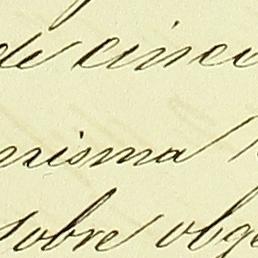 de cinco
misma
sobre obge